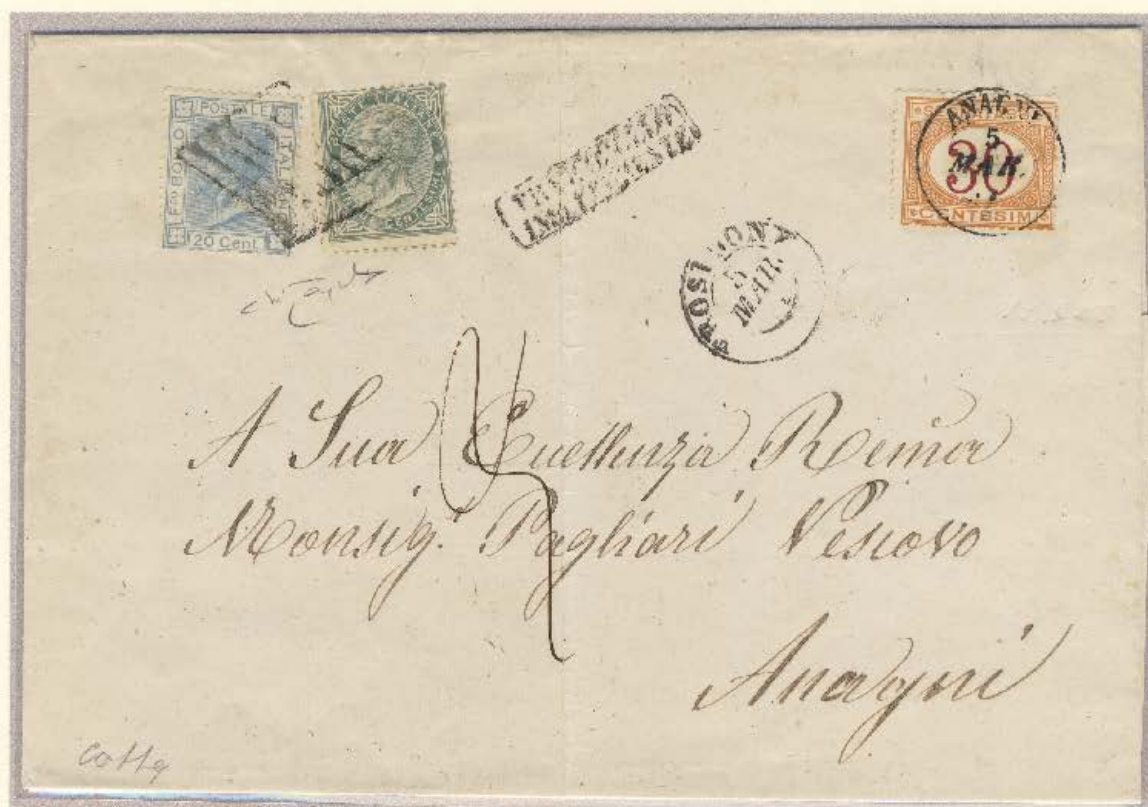 POSTALE
ITALIANO
FRANCOBOLLO
20 Cent
FRANCOBOLLO
INSUFFICIENTE
ANAGNI
5
MAR.
30
CENTESIMI
FROSINONE
5
MAR.
A Sua Eccellenza Rema
Monsig. Pagliari Vescovo
Anagni